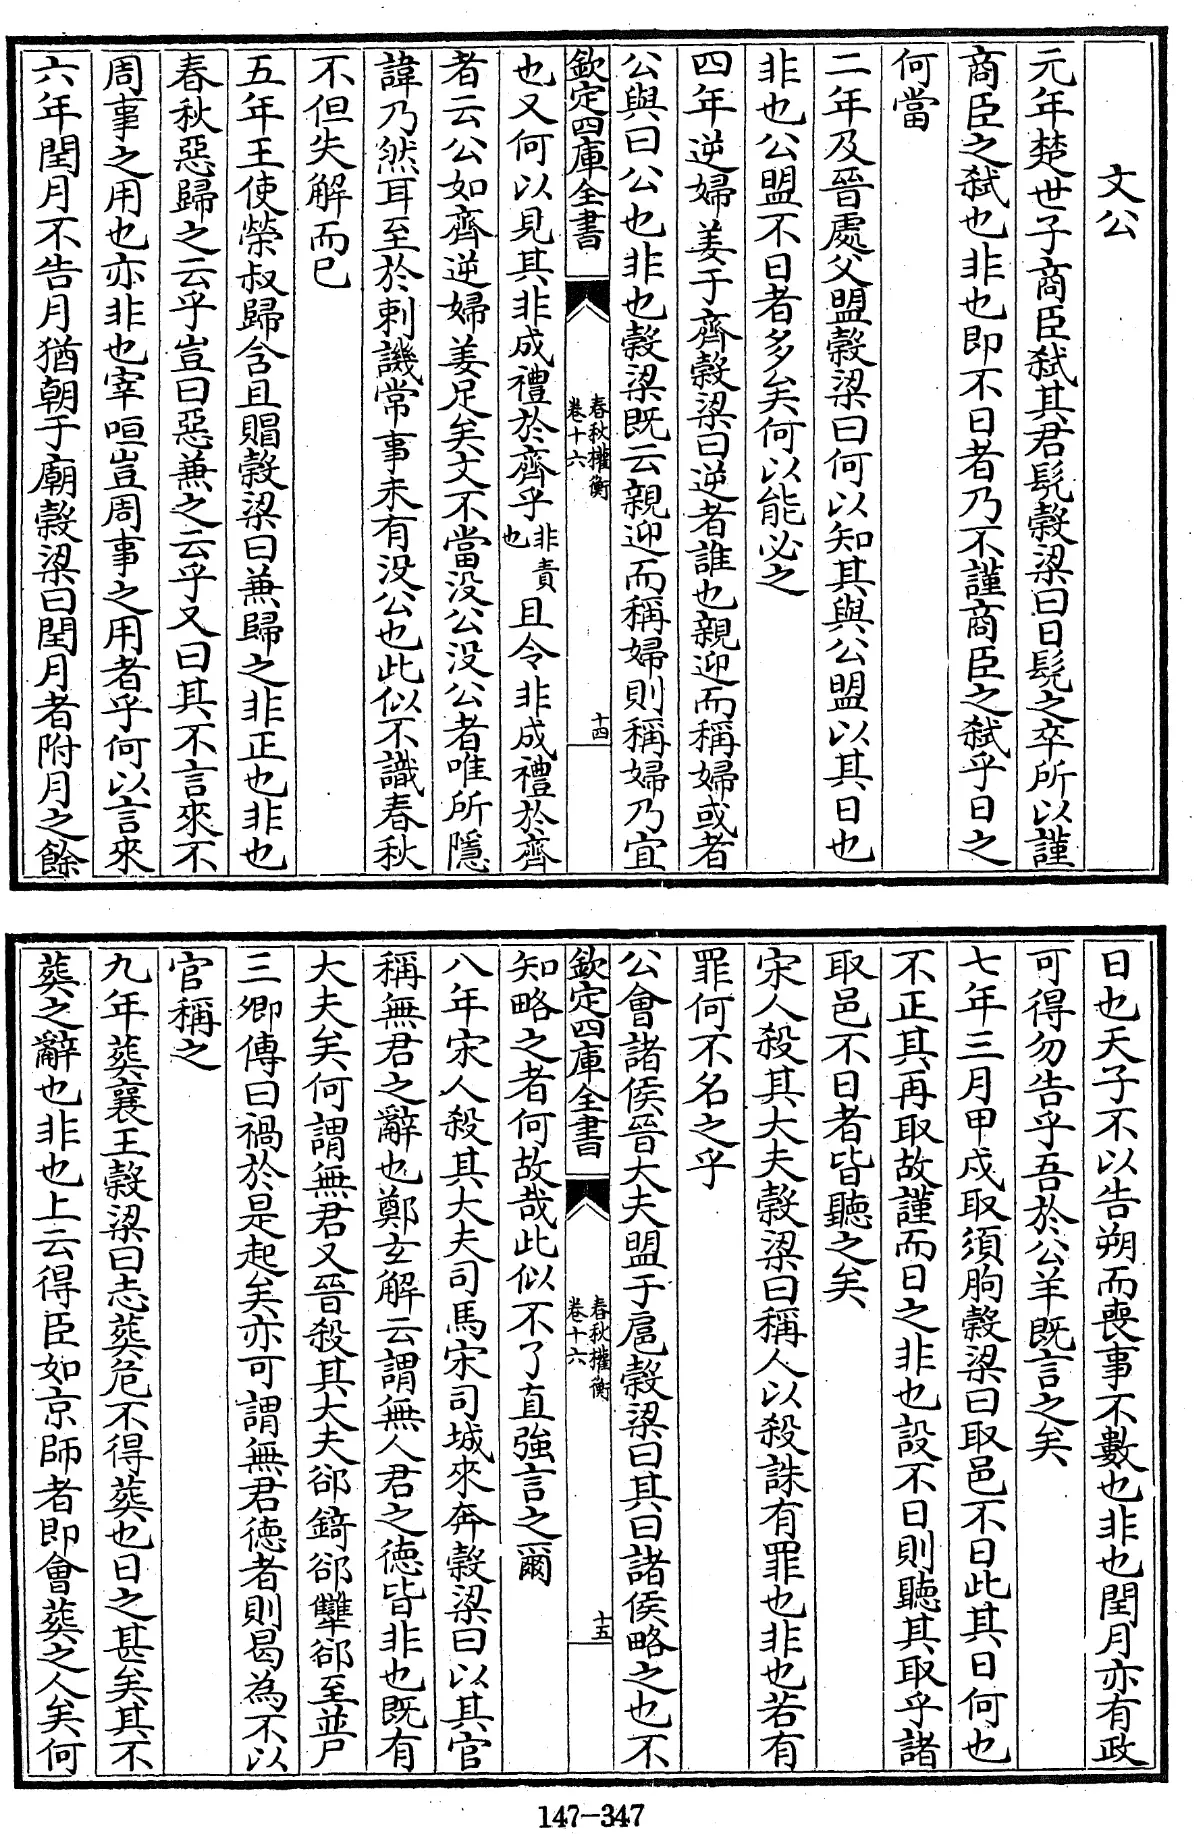 文公
元年楚世子商臣弑其君髡穀梁曰日髡之卒所以謹
商臣之弑也非也即不日者乃不謹商臣之弑乎日之
何當
二年及晉處父盟穀梁曰何以知其與公盟以其日也
非也公盟不日者多矣何以能必之
四年逆婦姜于齊穀梁曰逆者誰也親迎而稱婦或者
公與曰公也非也穀梁既云親迎而稱婦則稱婦乃宜
欽定四庫全書
春秋權衡
卷十六
十四
也又何以見其非成禮於齊乎非責也且令非成禮於齊
者云公如齊逆婦姜足矣文不當没公没公者唯所隱
諱乃然耳至於刺譏常事未有没公也此似不識春秋
不但失解而已
五年王使榮叔歸含且賵穀梁曰兼歸之非正也非也
春秋惡歸之云乎豈曰惡兼之云乎又曰其不言來不
周事之用也亦非也宰咺豈周事之用者乎何以言來
六年閏月不告月猶朝于廟穀梁曰閏月者附月之餘
日也天子不以告朔而喪事不數也非也閏月亦有政
可得勿告乎吾於公羊既言之矣
七年三月甲戌取須朐穀梁曰取邑不日此其日何也
不正其再取故謹而日之非也設不日則聽其取乎諸
取邑不日者皆聽之矣
宋人殺其大夫穀梁曰稱人以殺誅有罪也非也若有
罪何不名之乎
公會諸侯晉大夫盟于扈穀梁曰其曰諸侯略之也不
欽定四庫全書
春秋權衡
卷十六
十五
知略之者何故哉此似不了直強言之爾
八年宋人殺其大夫司馬宋司城來奔穀梁曰以其官
稱無君之辭也鄭玄解云謂無人君之德皆非也既有
大夫矣何謂無君又晉殺其大夫郤錡郤犫郤至並尸
三卿傳曰禍於是起矣亦可謂無君德者則曷為不以
官稱之
九年葬襄王穀梁曰志葬危不得葬也日之甚矣其不
葬之辭也非也上云得臣如京師者即會葬之人矣何
147-347